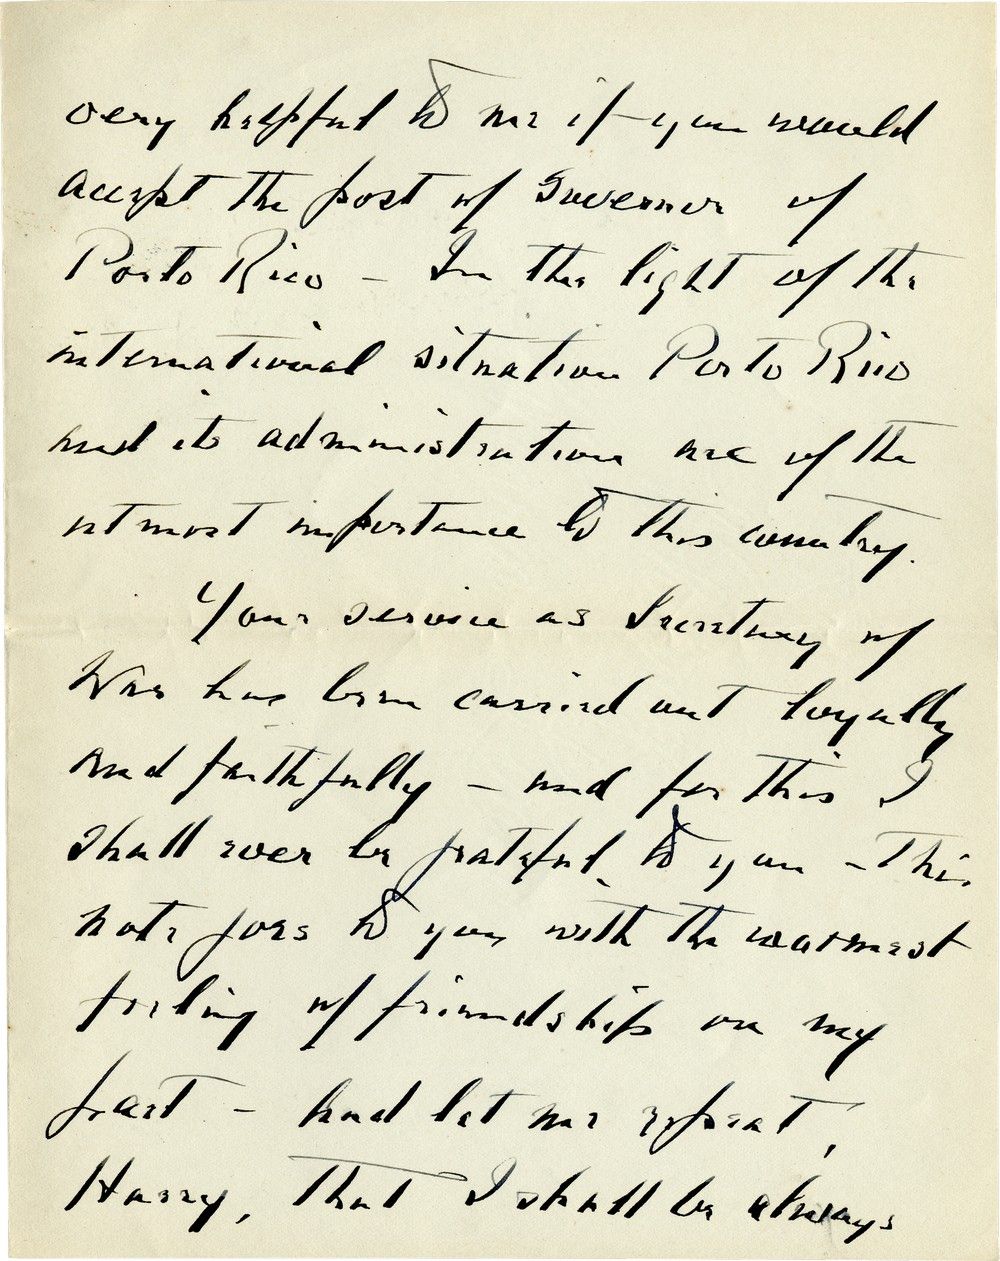 very helpful to me if you would
accept the post of Governor of
Porto Rico – In the light of the
international situation Porto Rico
and its administration are of the
utmost importance to this country.
Your service as Secretary of
War has been carried out loyally
and faithfully – and for this I
shall ever be grateful to you – This
note goes to you with the warmest
feeling of friendship on my
part – And let me repeat,
Harry, that I shall be always